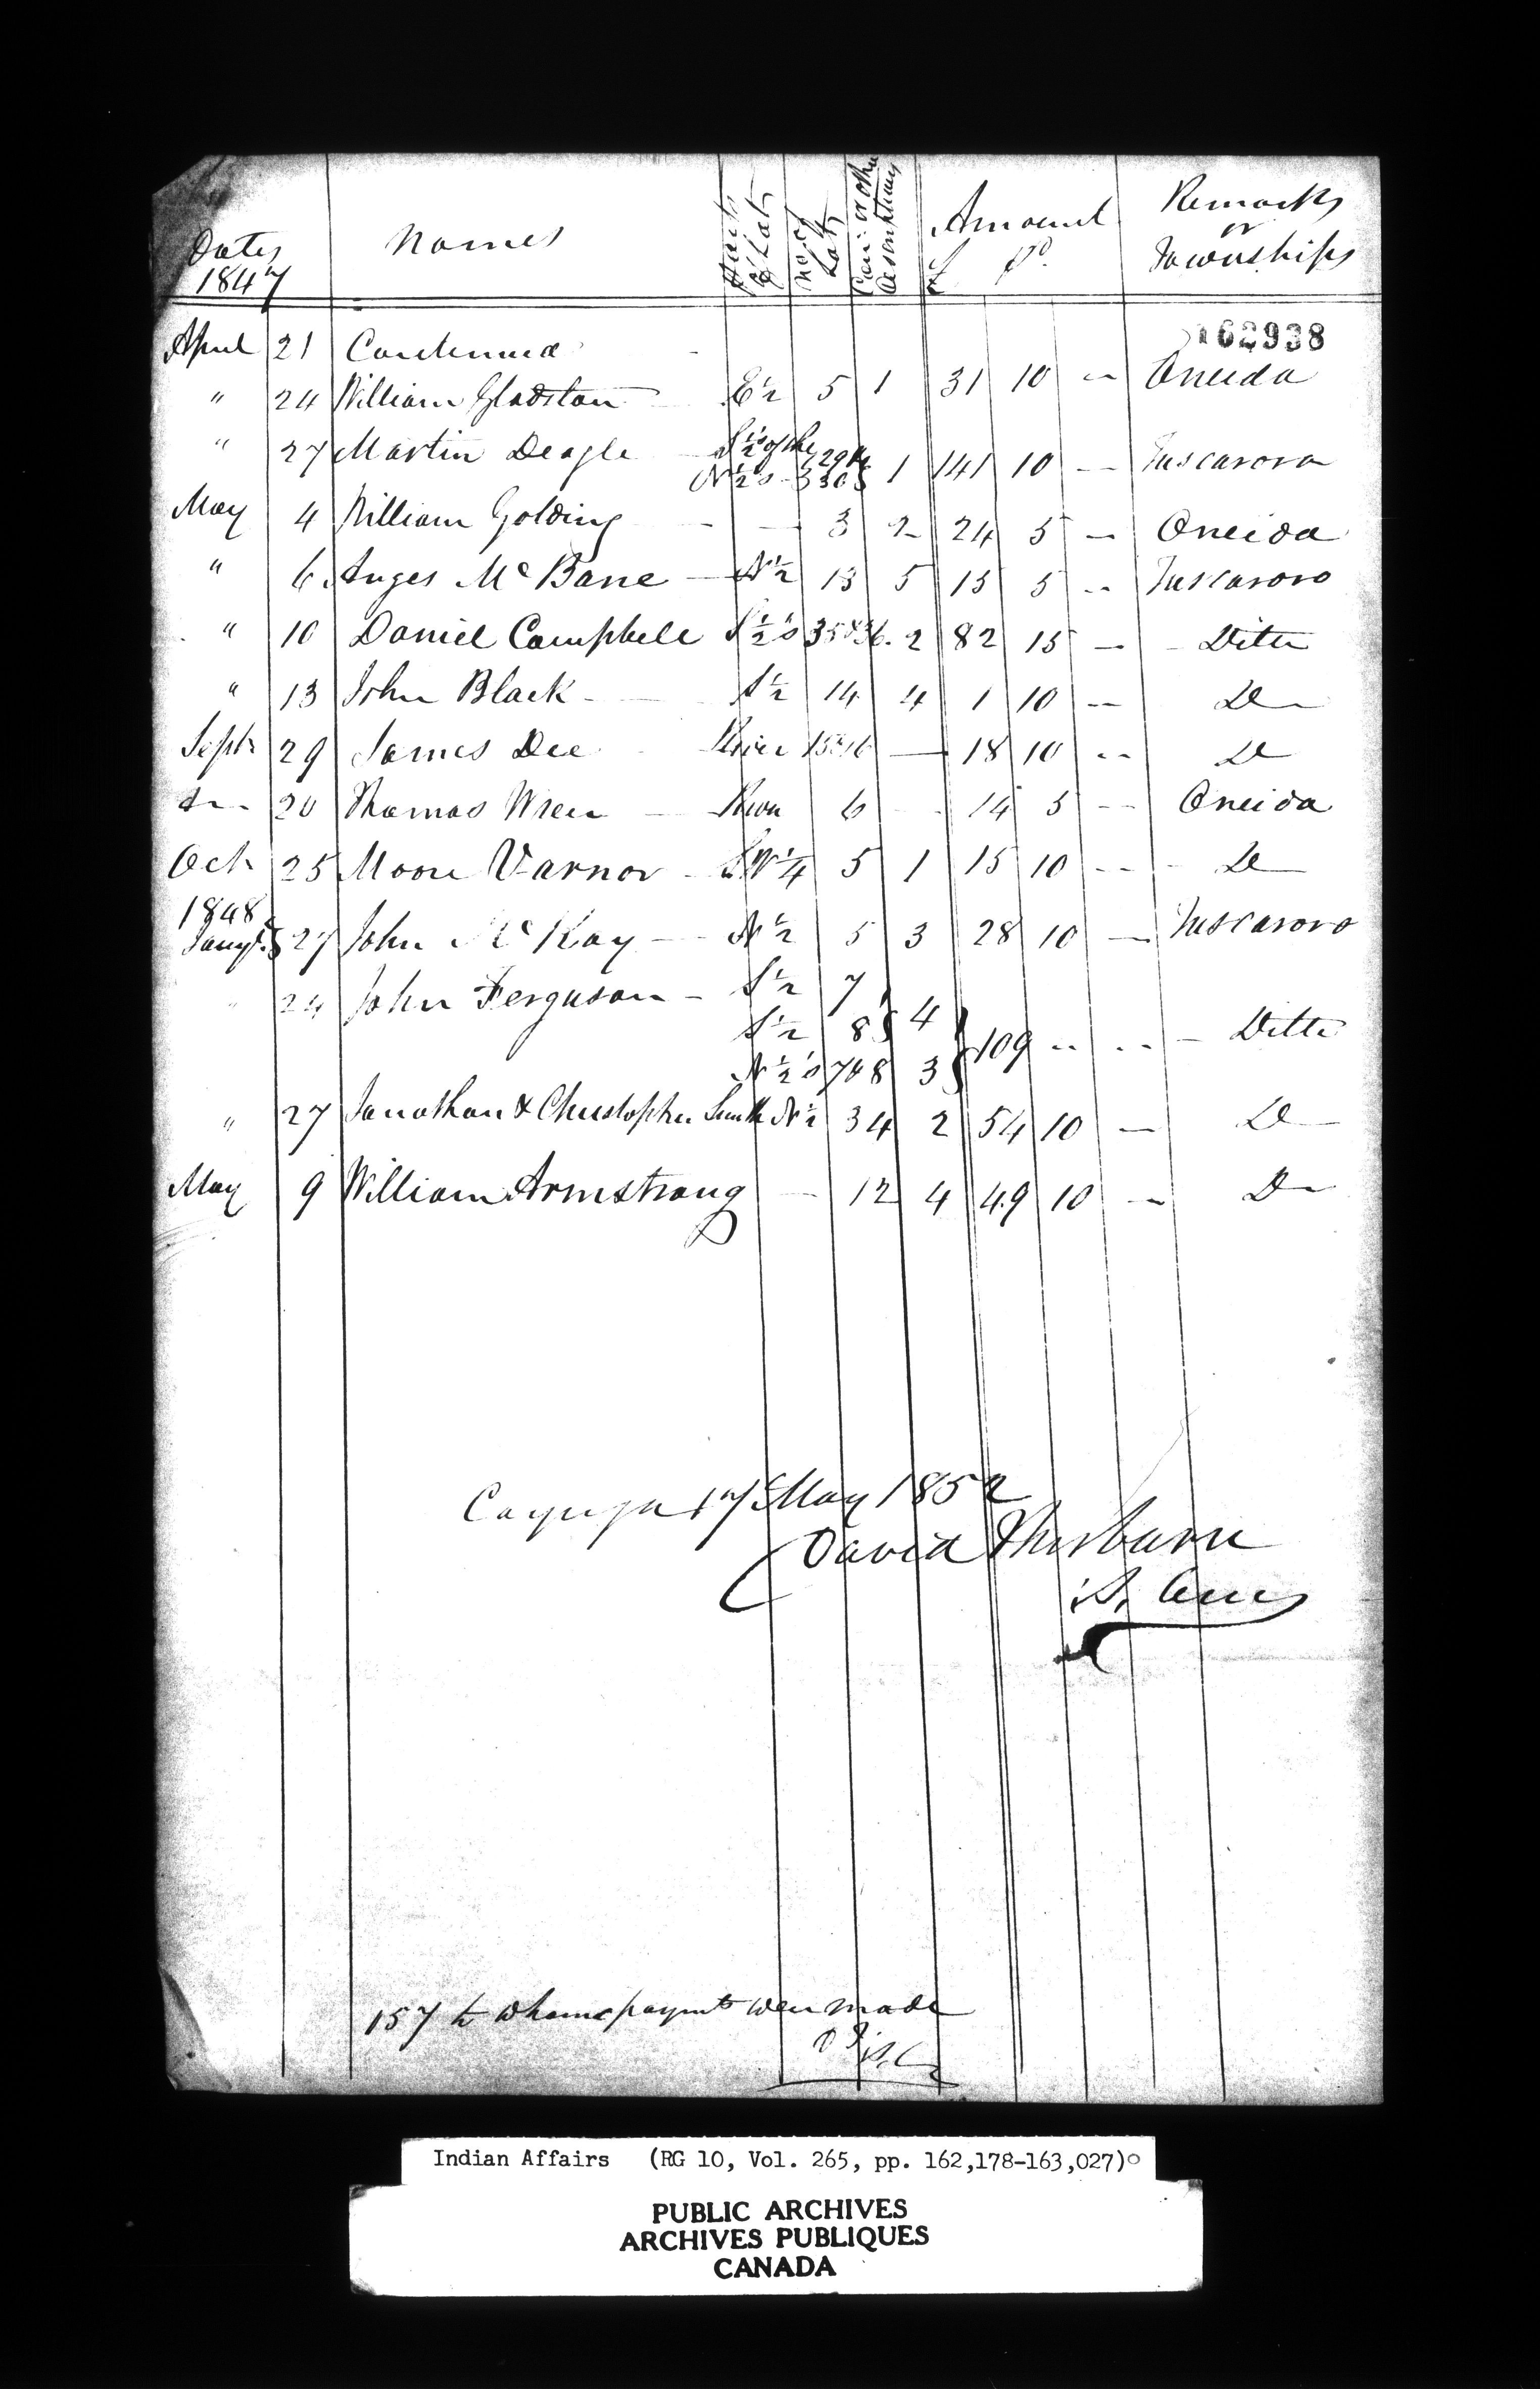 Dates 1847 Names Parts of Lots No. of Lots Con: or other descriptions Amount £ Pd. Remarks or Townships
162938
April 21 Continued
" 24 William Gladstan E½ 5 1 31 10 -- Oneida
" 27 Martin Deagle S½s of the 29 to
N½s 33 1 141 10 -- Tuscarora
May 4 William Golding - - 3 2 24 5 -- Oneida
" 6 Anges McBane N½ 13 5 15 5 -- Tuscarora
" 10 Daniel Campbell S½s 35 & 36 2 82 15 -- Ditto
" 13 John Black S½ 14 4 1 10 -- Do
Septr 29 James Dee River 15 & 16 — 18 10 -- Do
Do 20 Thomas Wren River 6 - 14 5 -- Oneida
Oct 25 Moore Varnor SW¼ 5 1 15 10 -- Do
1848
Jany 27 John McKay N½ 5 3 28 10 — Tuscarora
" 24 John Ferguson S½ 7
S½ 8 4
N½s 7&8 3 109 -- -- Ditto
" 27 Jonathan & Christopher Smith N½ 34 2 54 10 — Do
May 9 William Armstrong — 12 4 49 10 — Do
Cayuga 17 May 1852
David Thorburn
157 to whom payments were made
D T
Indian Affairs (RG 10, Vol. 265, pp. 162,178-163,027)
PUBLIC ARCHIVES
ARCHIVES PUBLIQUES
CANADA